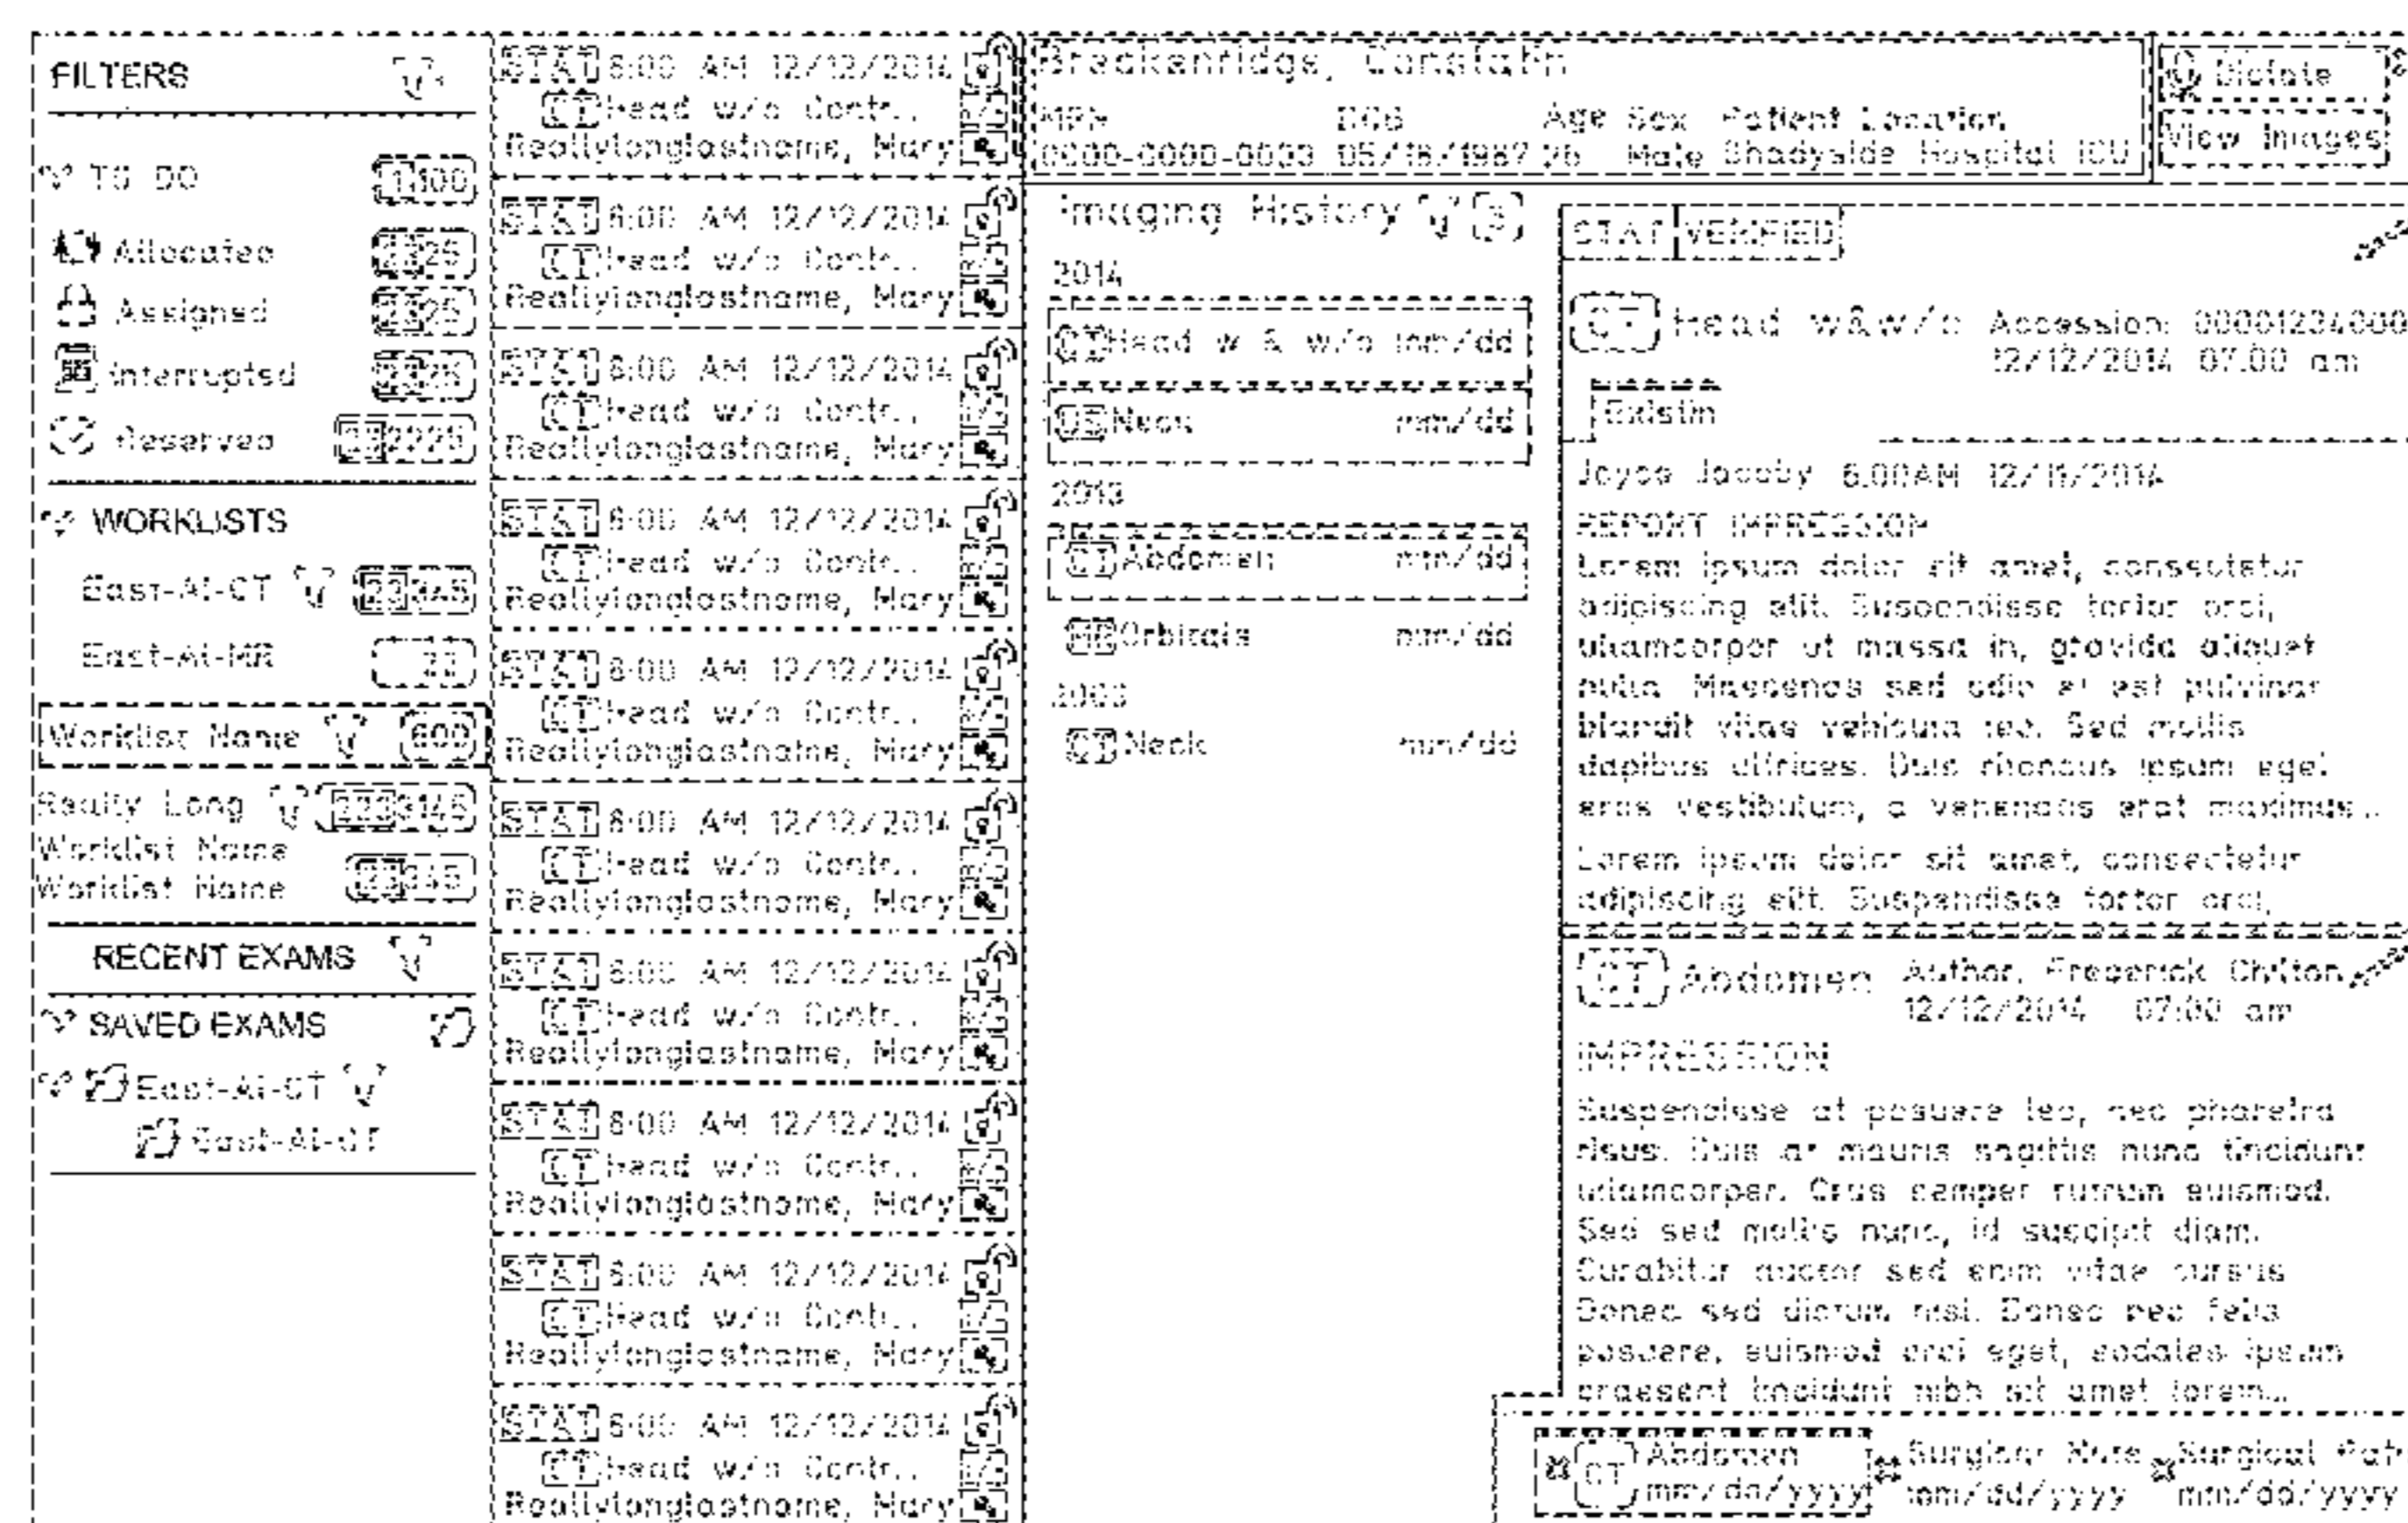 FILTERS
TO DO 1,100
Allocated 25
Assigned 25
Interrupted 25
Reserved
WORKLISTS
East-AI-CT 23 345
East-AI-MR 23
Worklist Name 600
Really Long
Worklist Name
Worklist Name 23 345
RECENT EXAMS
SAVED EXAMS
East-AI-CT
East-AI-CT
STAT 8:00 AM 12/12/2014
CT Head w/o Contr..
Reallylonglastname, Mary
STAT 8:00 AM 12/12/2014
CT Head w/o Contr..
Reallylonglastname, Mary
STAT 8:00 AM 12/12/2014
CT Head w/o Contr..
Reallylonglastname, Mary
STAT 8:00 AM 12/12/2014
CT Head w/o Contr..
Reallylonglastname, Mary
STAT 8:00 AM 12/12/2014
CT Head w/o Contr..
Reallylonglastname, Mary
STAT 8:00 AM 12/12/2014
CT Head w/o Contr..
Reallylonglastname, Mary
STAT 8:00 AM 12/12/2014
CT Head w/o Contr..
Reallylonglastname, Mary
STAT 8:00 AM 12/12/2014
CT Head w/o Contr..
Reallylonglastname, Mary
STAT 8:00 AM 12/12/2014
CT Head w/o Contr..
Reallylonglastname, Mary
STAT 8:00 AM 12/12/2014
CT Head w/o Contr..
Reallylonglastname, Mary
Brackenridge,
MRN DOB Age Sex Patient Location
0000-0000-0000 05/18/1987 26 Male Shadyside Hospital ICU
Dictate
View Images
Imaging History 3
2014
CT Head w & w/o mm/dd
US Neck mm/dd
2013
CT Abdomen mm/dd
MR Orbitals mm/dd
2003
CT Neck mm/dd
STAT VERIFIED
CT Head w&w/o Accession: 000001234000
12/12/2014 07:00 am
Existin
Joyce Jacoby 6:00AM 12/11/2014
REPORT IMPRESSION
Lorem ipsum dolor sit amet, consectetur
adipiscing elit. Suspendisse tortor orci,
ullamcorper ut massa in, gravida aliquet
nulla. Maecenas sed odio at est pulvinar
blandit vitae vehicula leo. Sed mollis
dapibus ultrices. Duis rhoncus ipsum eget
eros vestibulum, a venenatis erat maximus..
Lorem ipsum dolor sit amet, consectetur
adipiscing elit. Suspendisse tortor orci,
CT Abdomen Author, Frederick Chilton
12/12/2014 07:00 am
IMPRESSION
Suspendisse at posuere leo, nec pharetra
risus. Duis at mauris sagittis nunc tincidunt
ullamcorper. Cras semper rutrum euismod.
Sed sed mollis nunc, id suscipit diam.
Curabitur auctor sed enim vitae cursus
Donec sed dictum nisl. Donec nec felis
posuere, euismod orci eget, sodales ipsum
praesent tincidunt nibh sit amet lorem..
CT Abdomen
mm/dd/yyyy
Surgical Note
mm/dd/yyyy
Surgical Path
mm/dd/yyyy